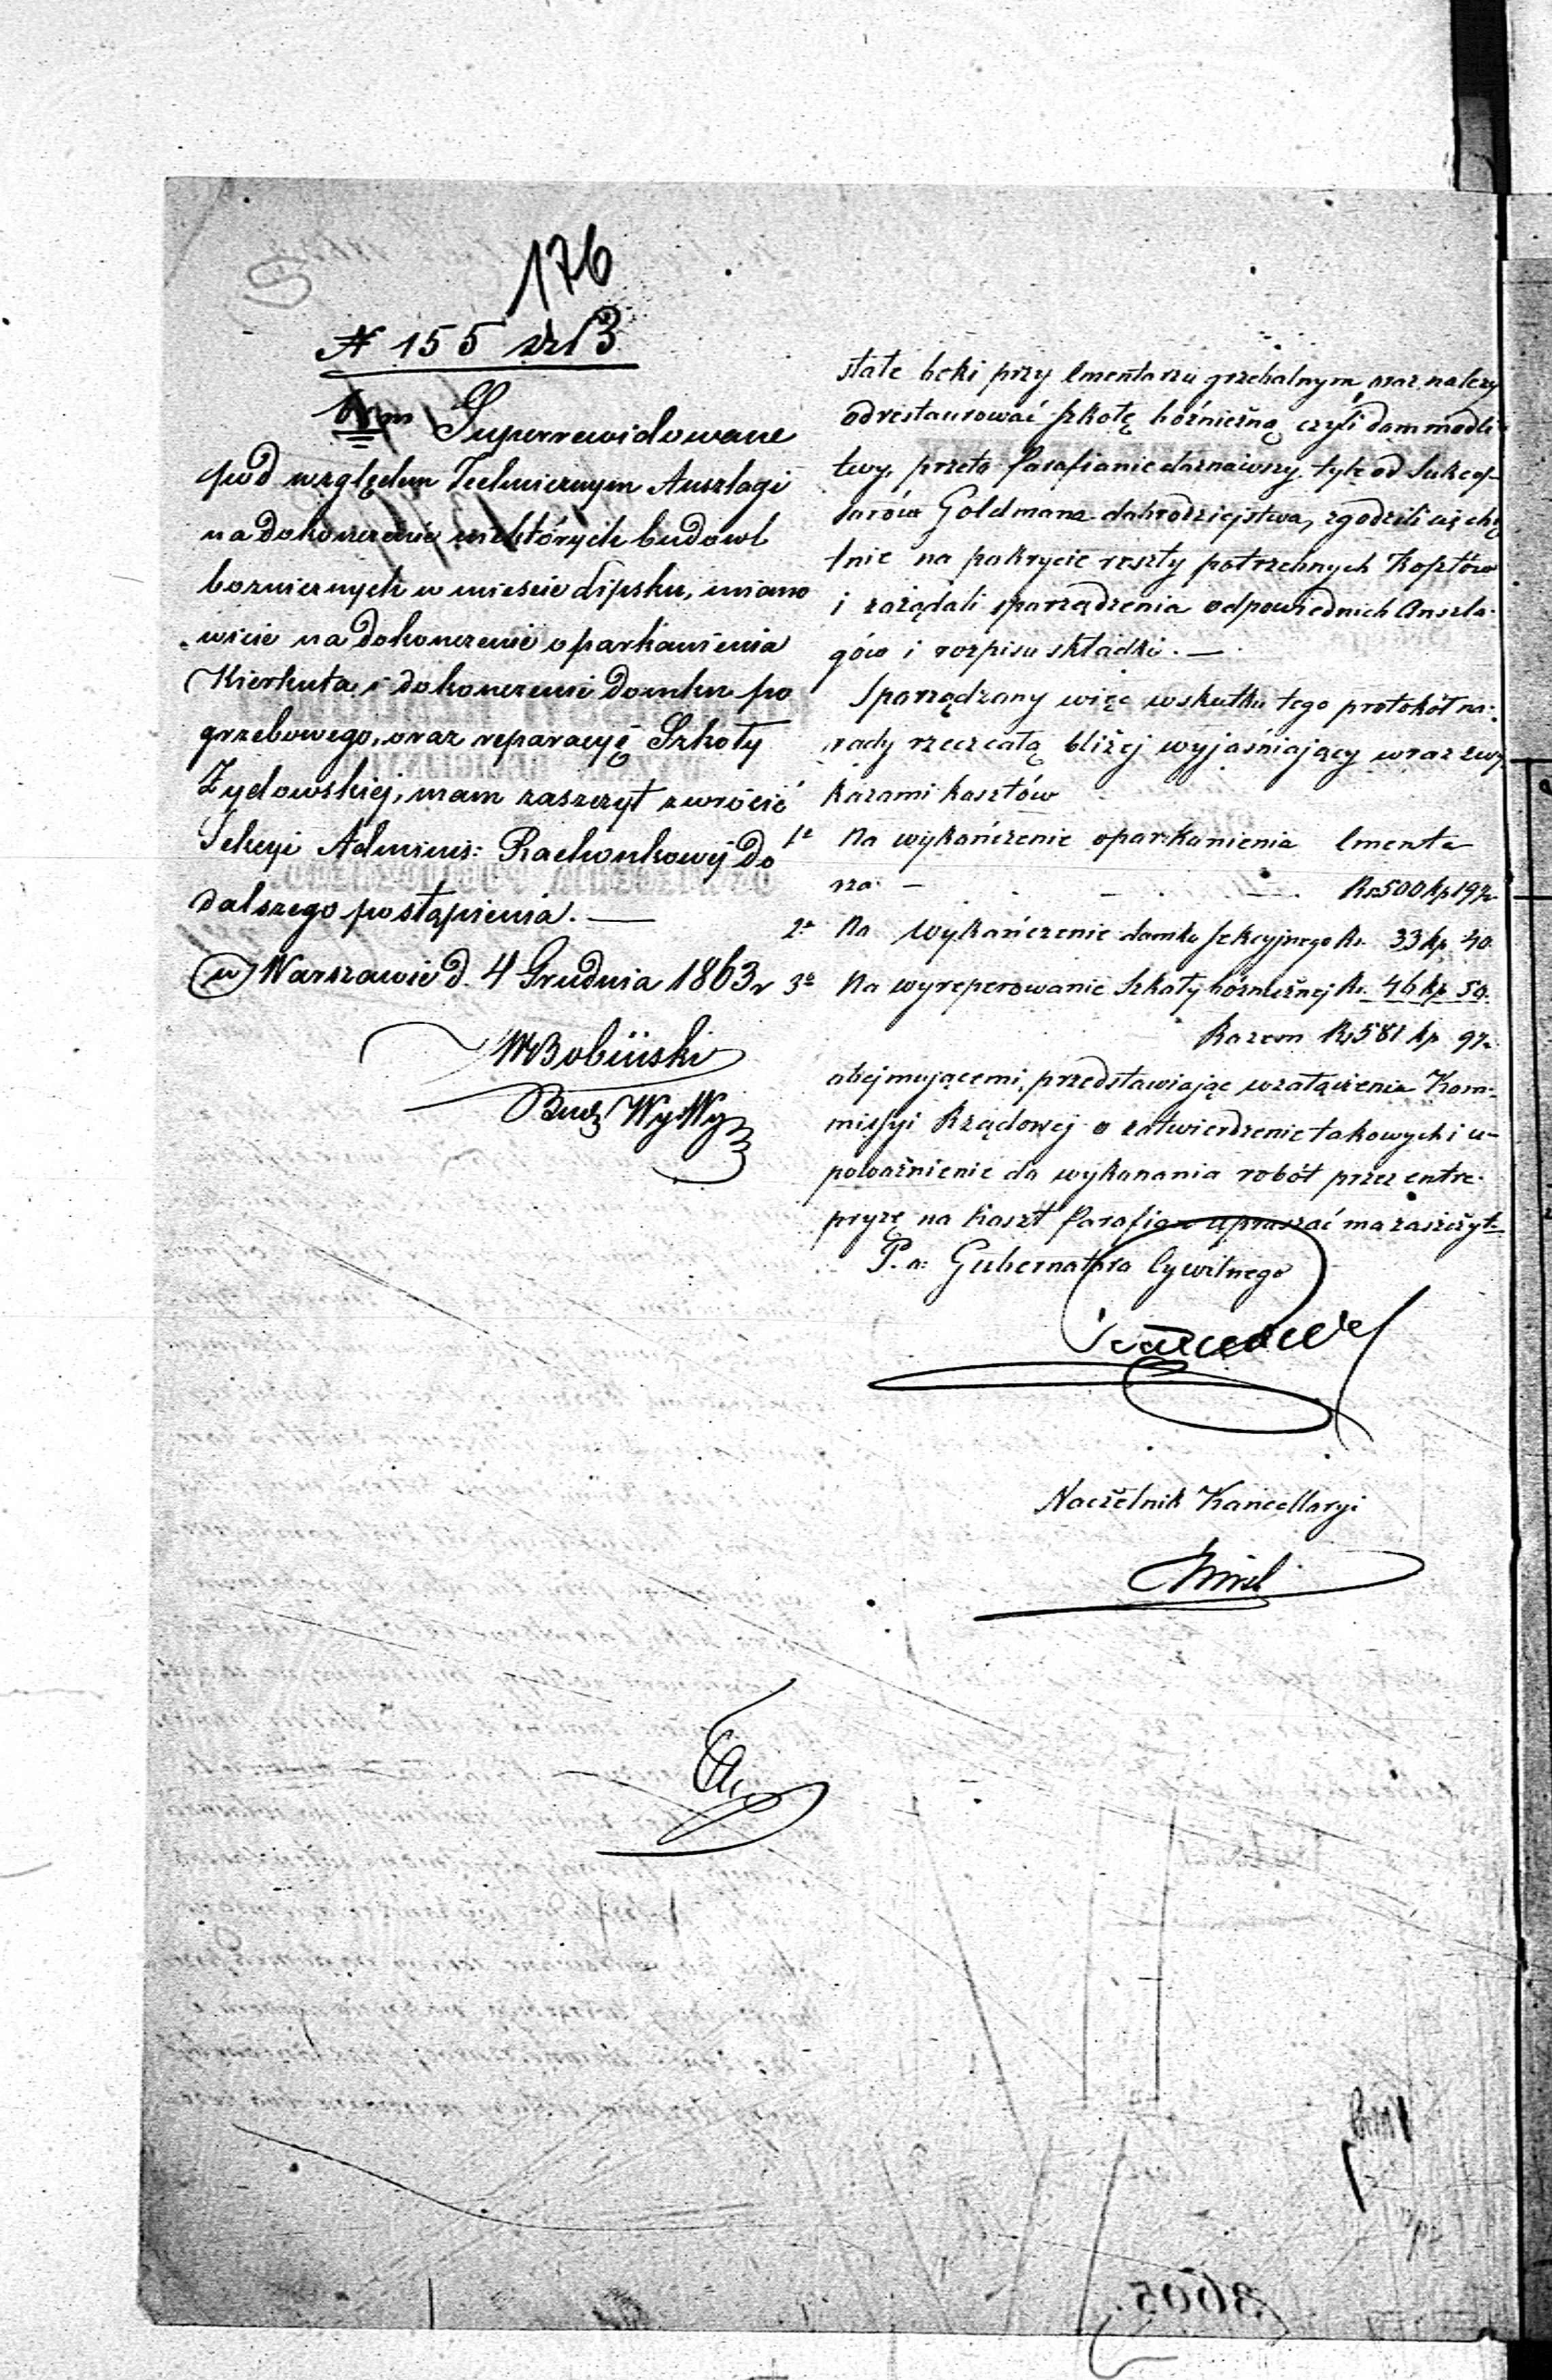 176
N 155
Superrewidowane
pod względem Technicznym Anszlagi
na dokonczenie niektórych budowl
bozniczych w mieście Lipsku, miano
wicie na dokonczenie oparkanienia
Kierkuta i dokonczenie domku po
grzebowego, oraz reparacyę Szkoły
Żydowskiej, mam zaszczyt zwrócić
Sekcyi Adminis: Rachunkowéj do
dalszego postąpienia. —
w Warszawie d. 4 Grudnia 1863 r
WBobiński
Bud WyWy
stałe boki przy Cmentarzu grzebalnym, oraz należy
odrestaurować szkołę bóżniczną czyli dom modli
twy, przeto Parafianie doznawszy tyle od Sukces-
sorów Goldmana dobrodziejstwa, zgodzili się chę
tnie na pokrycie reszty potrzebnych Kosztów
i zażądali sporządzenia odpowiednich Anszla-
gów i rozpisu składki. —
Sporządzony więc wskutku tego protokół na-
rady rzecz całą bliżej wyjaśniający wraz z wy
kazami kosztów
1e Na wykończenie oparkanienia Cmenta
rza — — — Rs 500 kp 19½
2e Na wykończenie domku sekcyjnego Rs. 33 kp. 40.
3e Na wyreperowanie Szkoły bóżnicznej Rs. 46 kp. 50.
Razem Rs 581 kp 9½.
obejmującemi, przedstawiając w załączeniu Kom-
missyi Rządowej o zatwierdzenie takowych i u-
poważnienie do wykonania robót przez entre-
pryzę na koszt Parafian upraszać ma zaszczyt.
P. o: Gubernatora Cywilnego
Naczelnik Kancellaryi
3605.